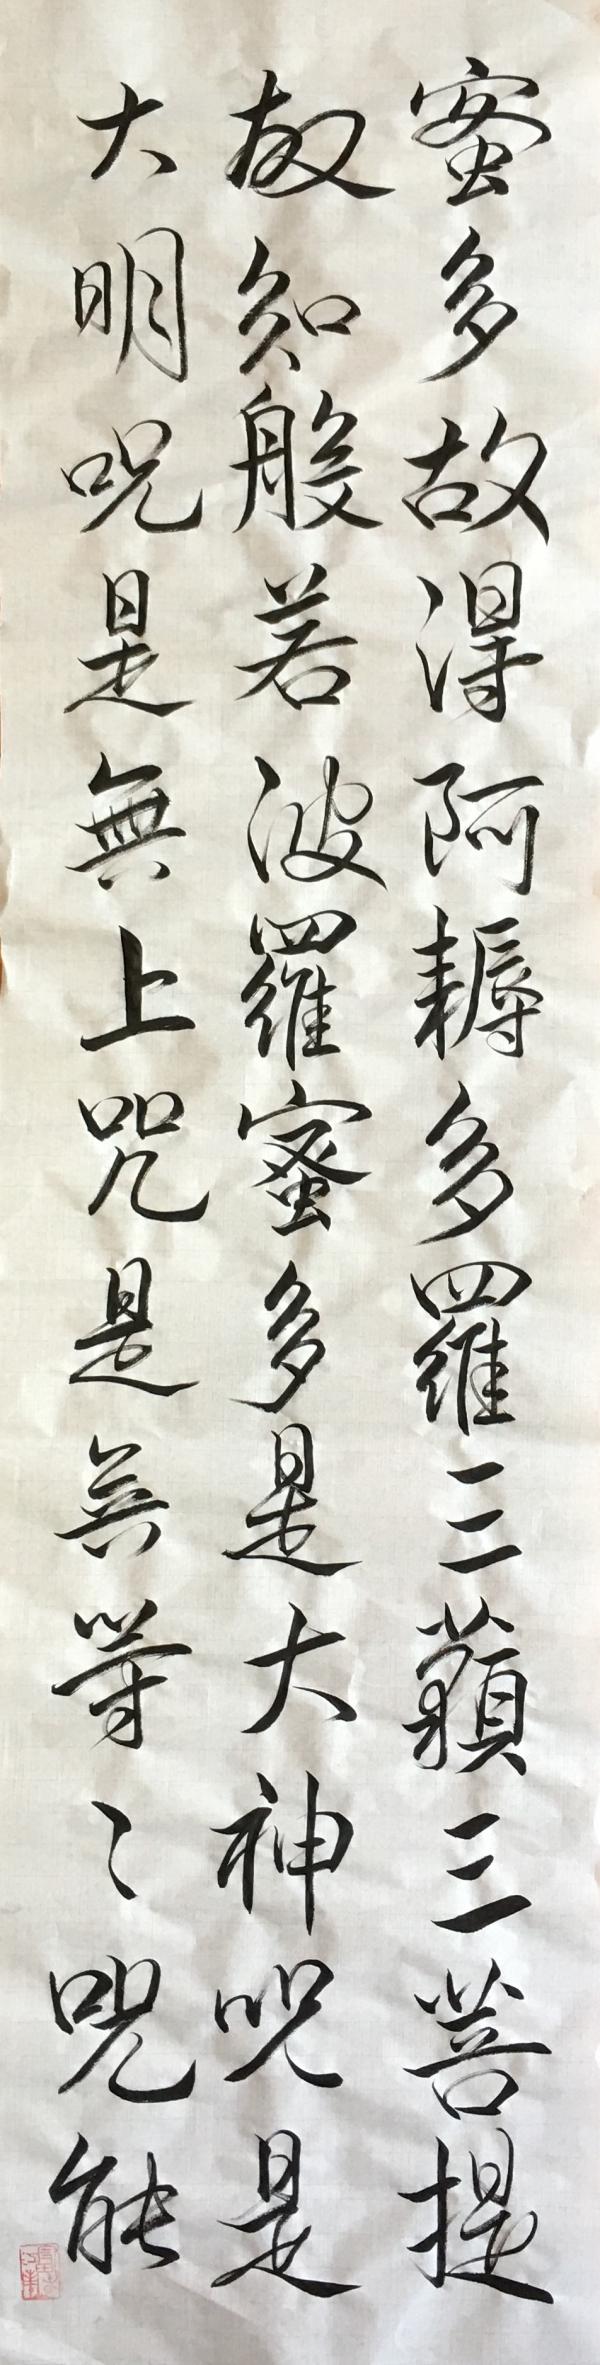 蜜多故得阿耨多羅三藐三菩提
故知般若波羅蜜多是大神呪是
大明呪是無上咒是無等〻呪能